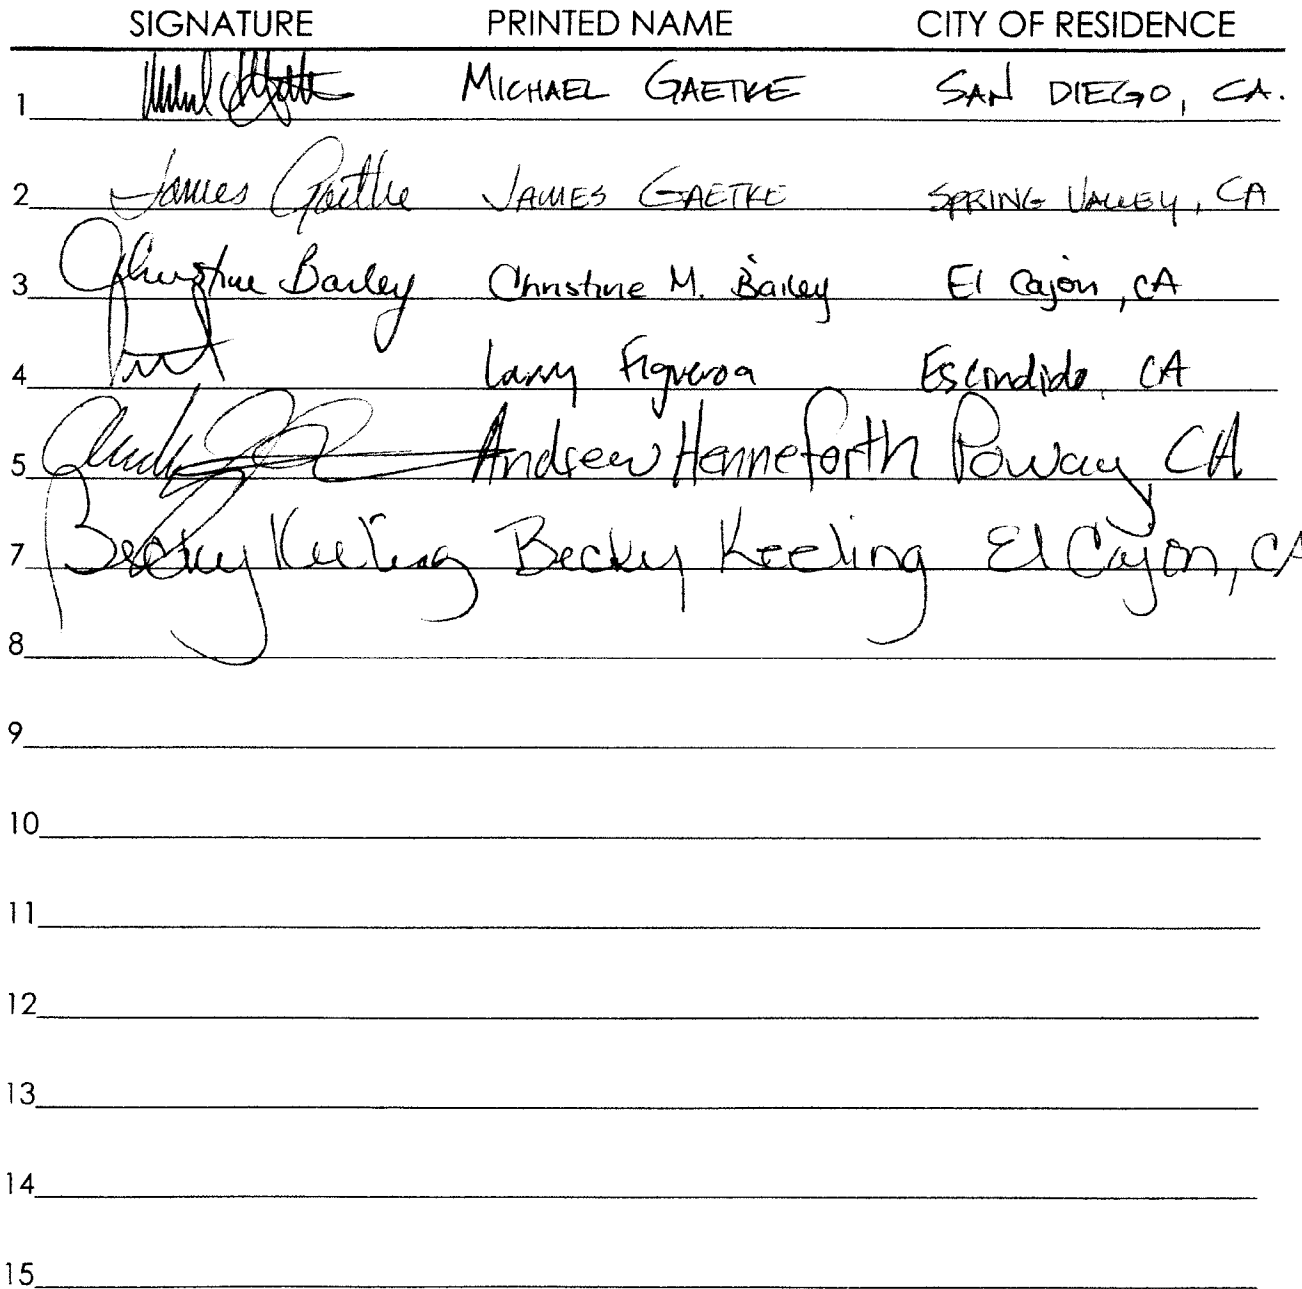 SIGNATURE PRINTED NAME CITY OF RESIDENCE
1 MICHAEL GAETKE SAN DIEGO, CA.
2 James Gaetke JAMES GAETKE SPRING VALLEY, CA
3 Christine Bailey Christine M. Bailey El Cajon, CA
4 Larry Figueroa Escondido, CA
5 Andrew Henneforth Poway, CA
7 Becky Keeling Becky Keeling El Cajon, CA
8
9
10
11
12
13
14
15